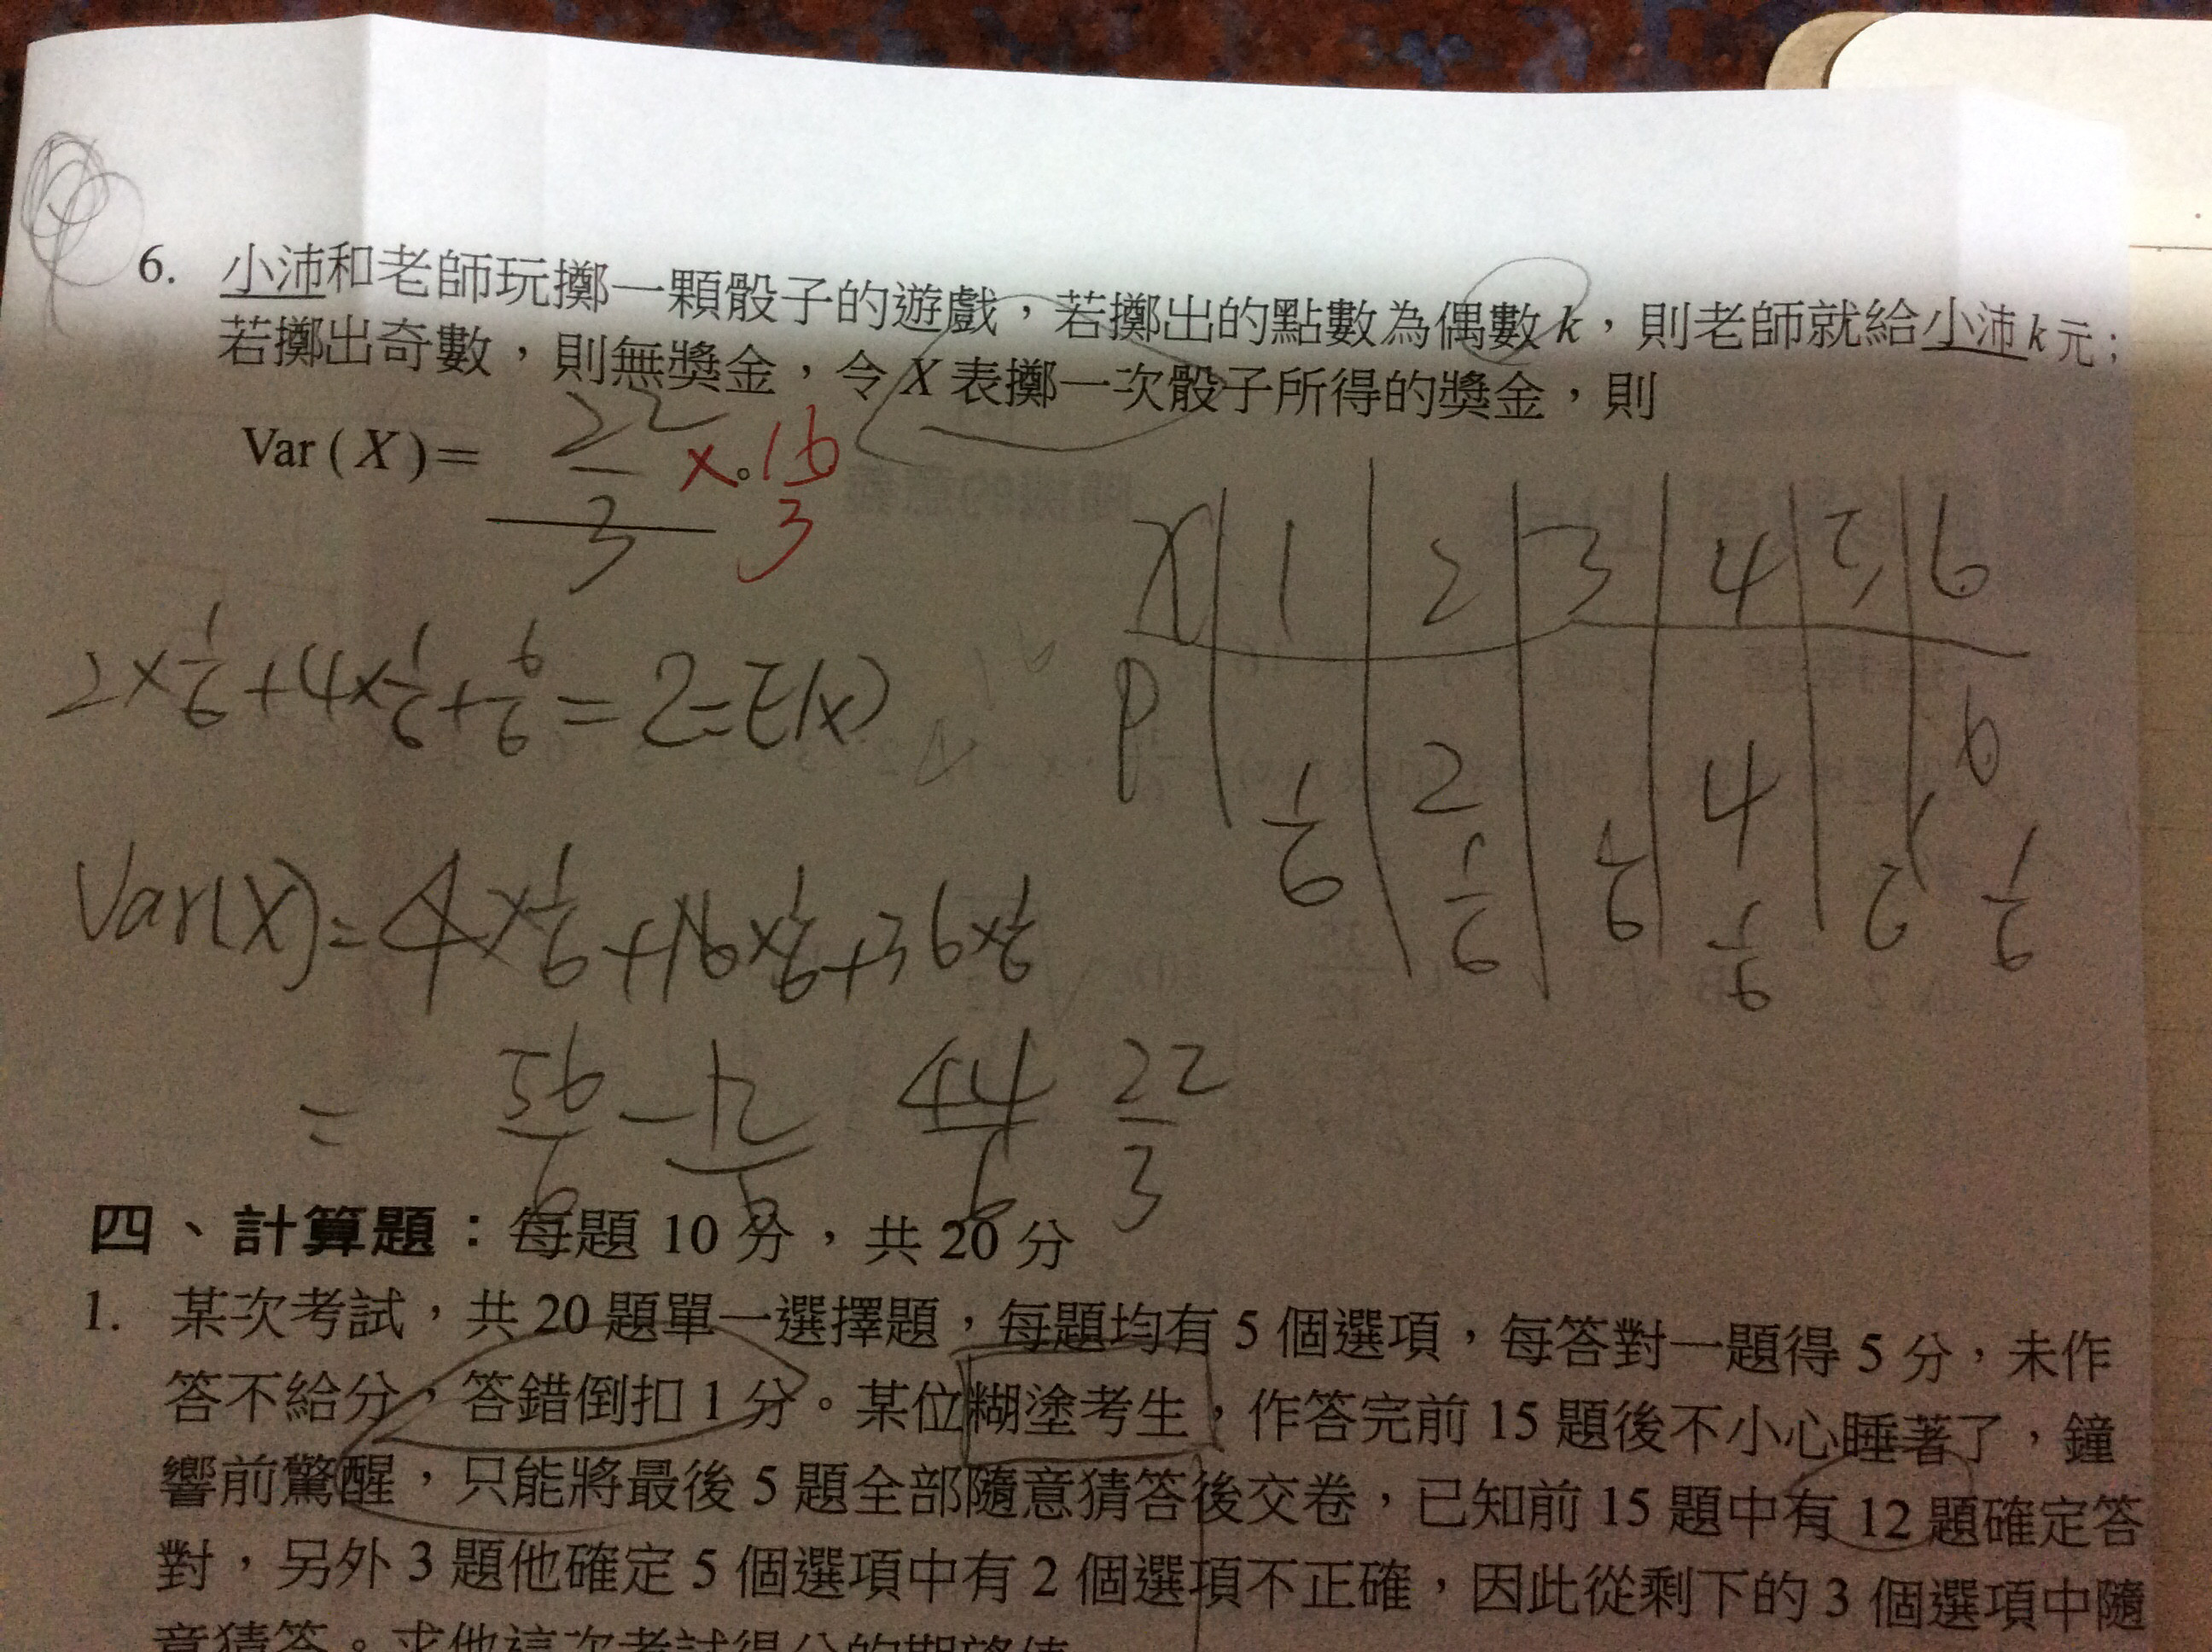 6. 小沛和老師玩擲一顆骰子的遊戲，若擲出的點數為偶數 k，則老師就給小沛 k 元；
若擲出奇數，則無獎金，令 X 表擲一次骰子所得的獎金，則
Var ( X ) = 22/3 。 × 16/3
X 1 2 3 4 5 6
P 1/6 2 1/6 1/6 4 1/6 1/6 6 1/6
2×1/6+4×1/6+6/6=2=E(x)
Var(X)=4×1/6+16×1/6+36×1/6
= 56/6 - 12/6 44/6 22/3
四、計算題：每題 10 分，共 20 分
1. 某次考試，共 20 題單一選擇題，每題均有 5 個選項，每答對一題得 5 分，未作
答不給分，答錯倒扣 1 分。某位糊塗考生，作答完前 15 題後不小心睡著了，鐘
響前驚醒，只能將最後 5 題全部隨意猜答後交卷，已知前 15 題中有 12 題確定答
對，另外 3 題他確定 5 個選項中有 2 個選項不正確，因此從剩下的 3 個選項中隨
意猜答。求他這次考試得分的期望值